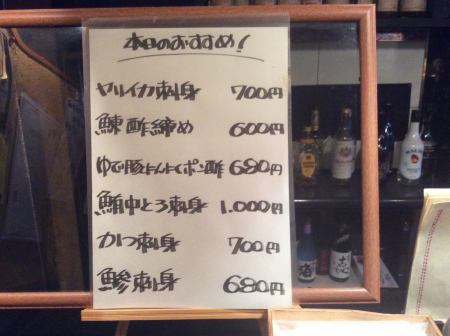 本日のおすすめ!
ヤリイカ刺身 700円
鰊酢締め 600円
ゆで豚にんにくポン酢 680円
鮪中とろ刺身 1.000円
かつ刺身 700円
鰺刺身 680円